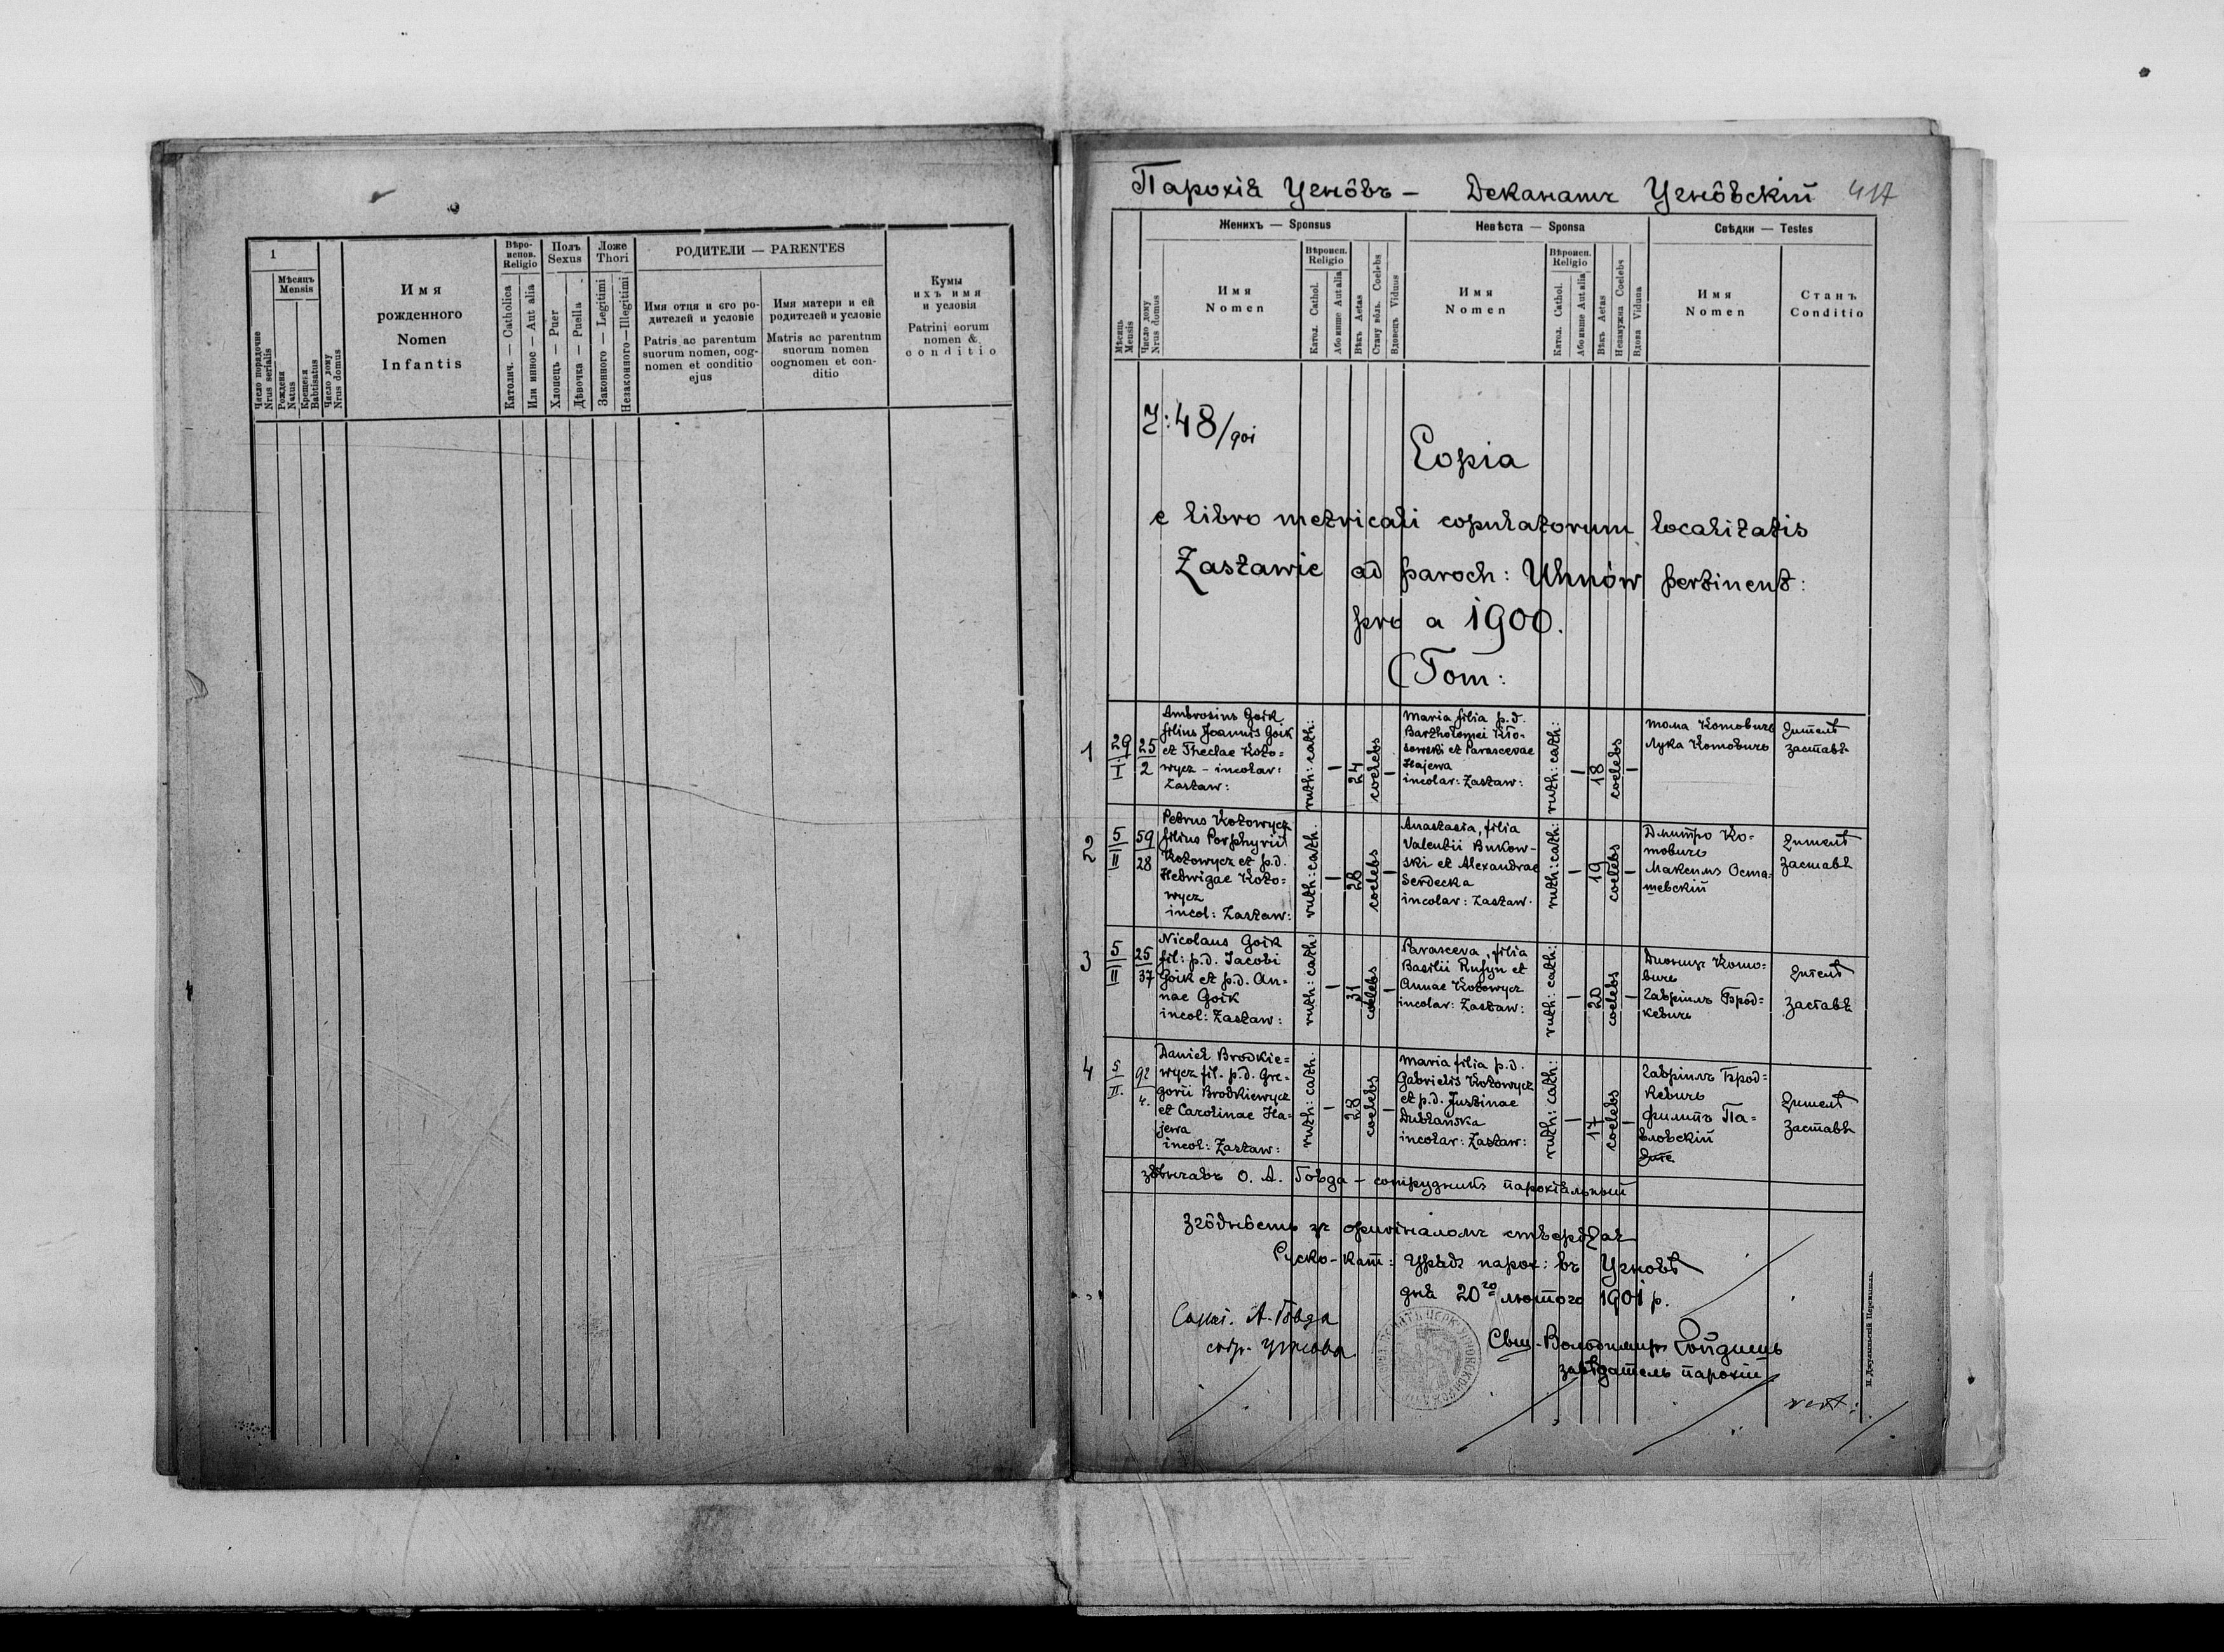 1
Мѣсяцъ
Mensis
Число порядочне
Nrus serialis
Рожденя
Natus
Крещеня
Babtisatus
Число дому
Nrus domus
Имя
рожденного
Nomen
Infantis
Вѣро-
испов.
Religio
Католич. — Catholica
Или инное — Aut alia
Полъ
Sexus
Хлопець — Puer
Дѣвочка — Puella
Ложе
Thori
Законного — Legitimi
Незаконного — Illegitimi
РОДИТЕЛИ — PARENTES
Имя отця и єго ро-
дителей и условіе
Patris ac parentum
suorum nomen, cog-
nomen et conditio
ejus
Имя матери и ей
родителей и условіе
Matris ac parentum
suorum nomen
cognomen et con-
ditio
Кумы
ихъ имя
и условія
Patrini eorum
nomen &
conditio
Парохія Угнôвъ — Деканатъ Угнôвскій 417
Мѣсяць
Mensis
Число дому
Nrus domus
Женихъ — Sponsus
Имя
Nomen
Вѣроисп.
Religio
Катол. Cathol.
Або инше Aut alia
Вѣкъ Aetas
Стану вôль. Coelebs
Вдовець Viduus
Невѣста — Sponsa
Имя
Nomen
Вѣроисп.
Religio
Катол. Cathol.
Або инше Aut alia
Вѣкъ Aetas
Незамужна Coelebs
Вдова Vidua
Свѣдки — Testes
Имя
Nomen
Станъ
Conditio
48/901
Copia
e libro metricali copulatorum localitatis
Zastawie ad paroch: Uhnów pertinent:
pro a 1900.
(Tom:
1
29
I
25
2
Ambrosius Goik
filius Joannis Goik
et Theclae Koto-
wycz - incolar:
Zastaw:
ruth: cath:
—
24
coelebs
—
Maria filia p.d.
Bartholomei Kło-
sowski et Parascevae
Hajewa
incolar: Zastaw:
ruth: cath:
—
18
coelebs
—
Тома Котовичь
Лука Котовичь
Заставѣ
2
5
II
59
28
Petrus Kotowycz
filius Porphyrii
Kotowycz et p.d.
Hedwigae Koto=
wycz
incol: Zastaw:
ruth: cath.
—
28
coelebs
—
Anastasia, filia
Valentii Bukow-
ski et Alexandrae
Serdecka
incolar: Zastaw.
ruth: cath:
—
19
coelebs
—
Дмитро Ко-
товичь
Максимъ Оста=
шевскій
Заставѣ
3
5
II
25
37
Nicolaus Goik
fil: p.d. Jacobi
Goik et p.d. An-
nae Goik
incol: Zastaw:
ruth: cath:
—
31
coelebs
—
Parasceva, filia
Basilii Rufyn et
Annae Kotowycz
incolar: Zastaw:
ruth: cath:
—
20
coelebs
—
Кото=
вичь
Гавріилъ Брод=
кевичь
Заставѣ
4
5
II.
92
4.
Daniel Brodkie=
wycz fil. p.d. Gre-
gorii Brodkiewycz
et Carolinae Ha=
jewa
incol: Zastaw:
ruth: cath.
—
28
coelebs
—
Maria filia p.d.
Gabrielis Kotowycz
et p.d. Justinae
Dublańska
incolar: Zastaw:
ruth: cath:
—
17
coelebs
—
Гавріилъ Брод=
кевичь
Филипъ Па=
вловскій
Заставѣ
звѣнчавъ О. А. Говда — сотрудникъ парохіяльный
Згôднôсть зъ оригіналомъ стверджає
Руско-кат: Урядъ парох: въ Угновѣ
дня 20го лютого 1901 р.
А. Говда
сотр. Угнова
Свщ. Володимиръ
завѣдатель парохіи
vert: